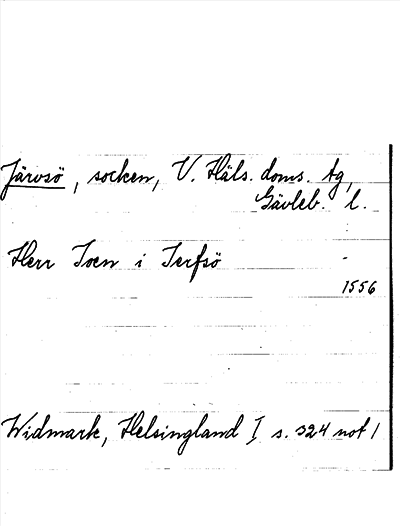 Järvsö, socken, V. Häls. doms. tg,
Gävleb. l.
Herr Joen i Jerfsö
1556
Widmark, Helsingland I s. 324 not 1